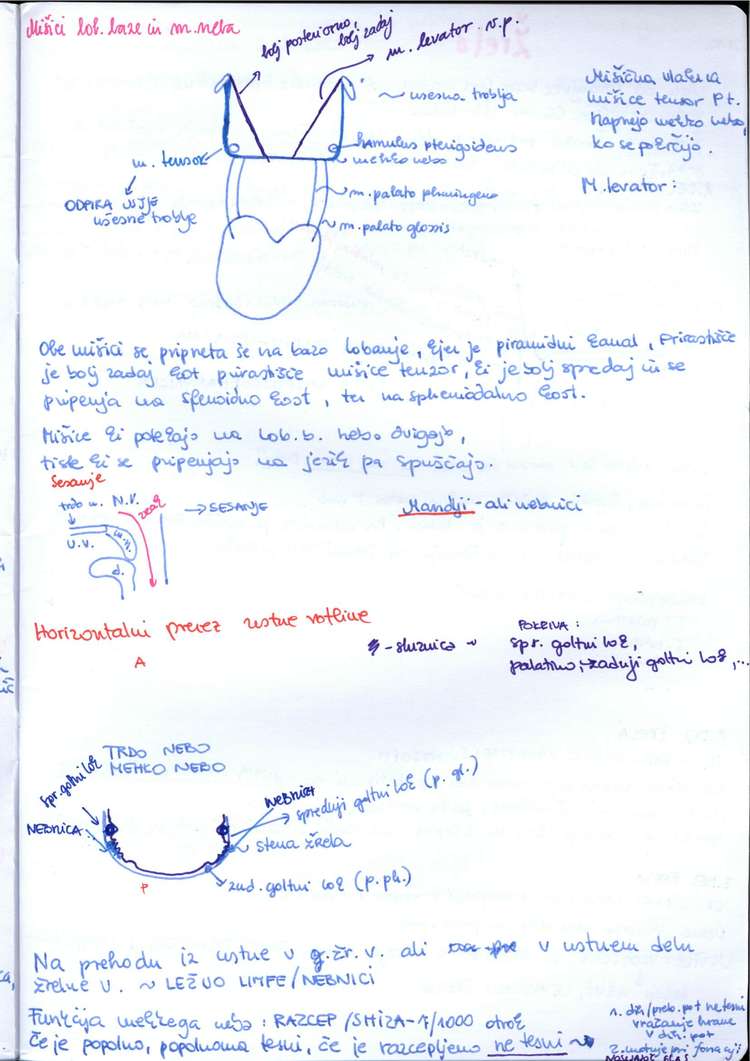 Mišici lob. baze in m. neba
bolj posteriorno,
bolj zadaj
m. levator v.p.
ušesna troblja
Mišična vlakna
mišice tensor pt.
napnejo mehko nebo,
ko se pokrčijo.
M. levator:
hamulus pterigoideus
mehko nebo
m. tensor
ODPIRA USTJE
ušesne troblje
m. palato pharingeus
m. palato glossis
Obe mišici se pripneta še na bazo lobanje, kjer je piramidni kanal, Prirastišče
je bolj zadaj kot prirastišče mišice tenzor, ki je bolj spredaj in se
pripenja na sfenoidno kost, ter na sphenoidalno kost.
Mišice ki potekajo na lob. b. nebo dvigajo,
tiste ki se pripenjajo na jezik pa spuščajo.
Sesanje
trdo n. N.V.
zrak
→ SESANJE
U.V.
m.n.
j.
Mandlji - ali nebnici
Horizontalni prerez ustne votline
A
- sluznica ~
POKRIVA:
spr. goltni lok,
palatino, zadnji goltni lok, ...
TRDO NEBO
MEHKO NEBO
spr. goltni lok
NEBNICA
NEBNICA
sprednji goltni lok (p. gl.)
stena žrela
P
zad. goltni lok (p. ph.)
Na prehodu iz ustne v g. žr. v. ali v ustnem delu
žrelne v. ~ LEŽIJO LIMFE/NEBNICI
Funkcija mehkega neba: RAZCEP/SHIZA - 1/1000 otrok
Če je popolno, popolnoma tesni, če je razcepljeno ne tesni ~
1. dih/preb. pot ne tesni
vračanje hrane
v dih. pot
2. motnje pri fonaciji